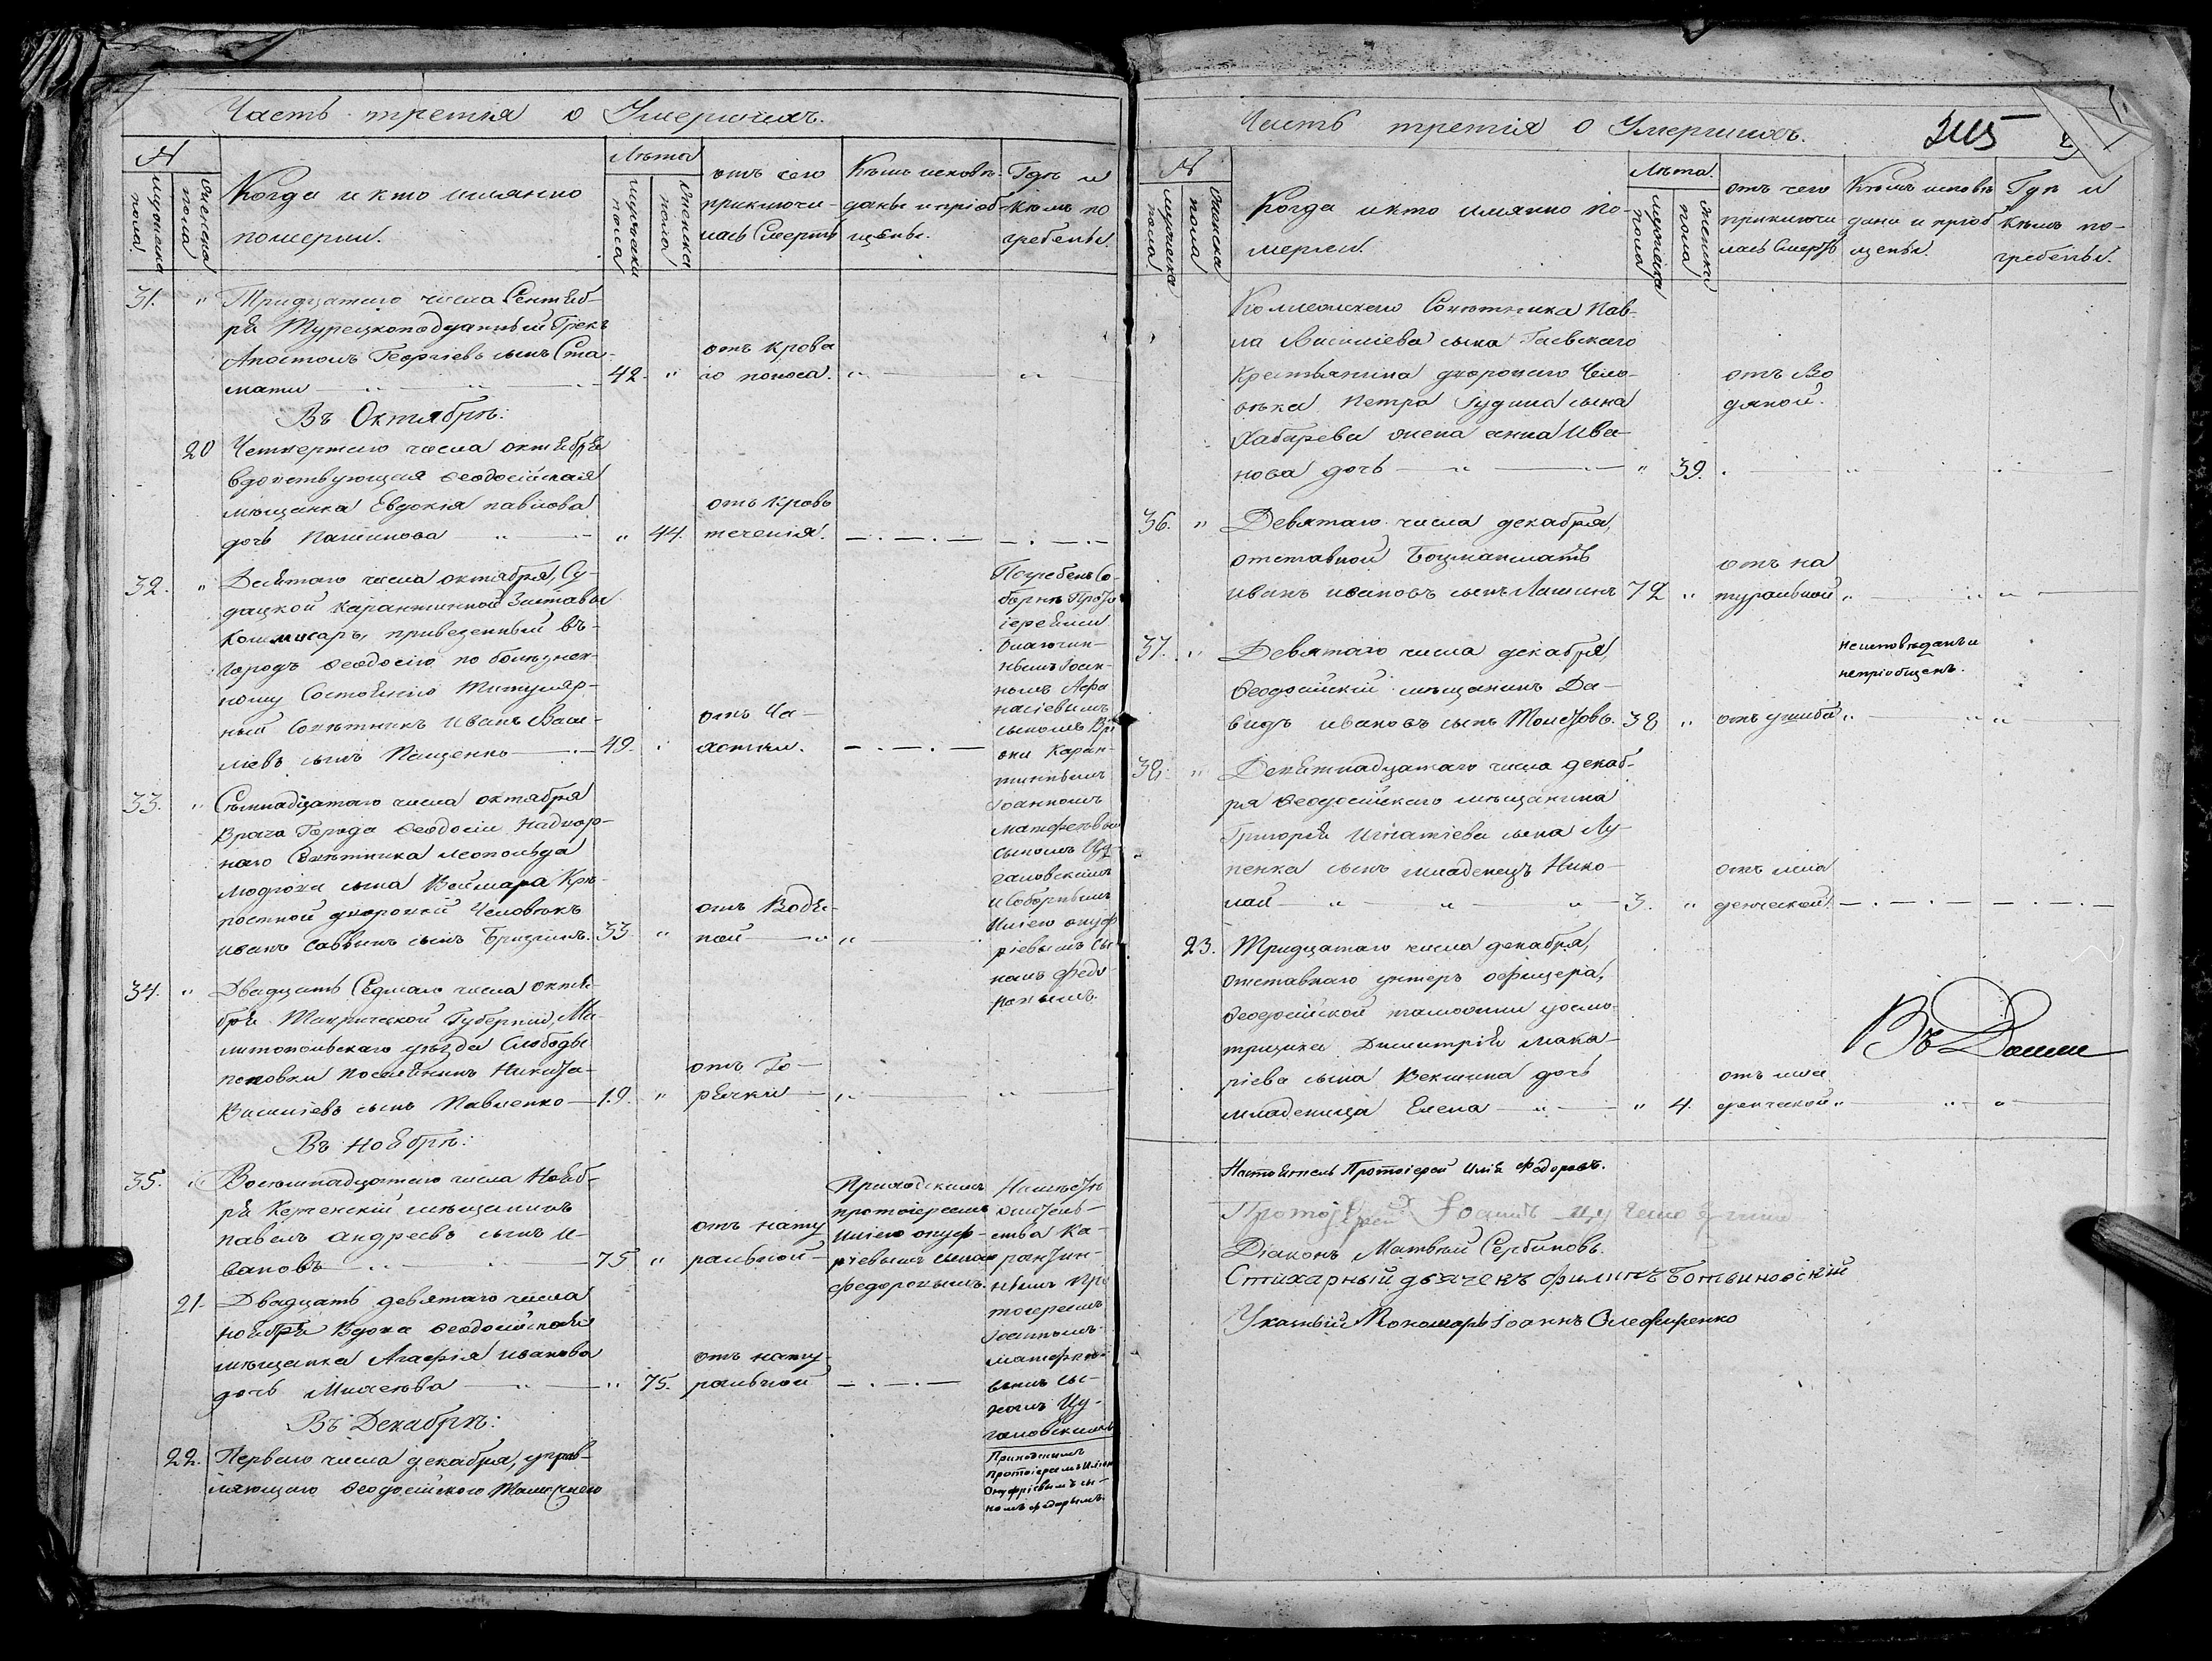 Часть третия о Умершихъ.
№
мужеска пола
женска пола
Когда и кто имянно
померли.
Лѣта
мужески пола
женска пола
отъ чего
приключи-
лась Смерть
Кѣмъ исповѣ-
даны и пріоб-
щены.
Гдѣ и
кѣмъ по
гребены.
31. "
Тридцатаго числа Сентяб-
ря Турецкоподданный Грекъ
Апостолъ Георгіевъ сынъ Ста-
мати
42. "
отъ крова
го поноса.
Въ Октябрѣ:
20
Четвертаго числа октября
вдовствующая Ѳеодосійская
мѣщанка Евдокія павлова
дочь
" 44.
отъ Крово
теченія.
32. "
Десятаго числа октября, Су-
дацкой карантинной Заставы
Коммисаръ, привезенный въ-
городъ Ѳеодосію по болѣзнен-
ному Состоянію Титуляр-
ный Совѣтникъ Иванъ Васи-
ліевъ сынъ Пащенко
49.
отъ Ча-
хотки.
Погребенъ Со-
борнѣ Прото
іереями
благочин-
нымъ Іоан-
номъ Афа
насіевымъ
сыномъ
Каран-
тиннымъ
Іоанномъ
матфеевым
сыномъ Цу-
гановскимъ
и Соборнымъ
Иліею онуф
ріевымъ сы
номъ Федо-
ровымъ.
33. "
Седмнадцатаго числа октября
Врача Города Ѳеодосіи Надвор-
наго Совѣтника леопольда
сына Веймара Крѣ-
постной дворовой Человѣкъ
иванъ саввинъ сынъ
33 "
отъ Водя-
ной
34. "
Двадцать Седмаго числа октя-
бря Таврической Губерніи, Ме-
литопольскаго уѣзда Слободы
поповки поселянинъ Никита
Василіевъ сынъ Павленко
19. "
отъ Го-
рячки
Въ Ноябрѣ:
35. "
Восемнадцатаго числа Нояб-
ря Керченскій мѣщанинъ
павелъ андреевъ сынъ И-
вановъ
75 "
отъ нату
ральной
Приходскимъ
протоіереемъ
Иліею онуф-
ріевымъ сыном
федоровымъ.
Намѣсте
ства Ка-
рантин-
нымъ про
тоіереемъ
Іоанномъ
матфее-
вымъ сы-
номъ Цу-
гановскимъ
21.
Двадцать девятаго числа
ноября Вдова Ѳеодосійская
мѣщанка Агафія иванова
дочь
" 75.
отъ нату-
ральной
Въ Декабрѣ:
22.
Перваго числа декабря, управ-
ляющаго Ѳеодосійскою Таможнею
Приходскимъ
протоіереемъ Иліею
Онуфріевымъ сы-
номъ федоровымъ.
Часть третія о Умершихъ.
345
№
мужеска пола
женска пола
Когда и кто имянно по-
мерли.
Лѣта.
мужеска пола
женска пола
отъ чего
приключи
лась Смерть
Кѣмъ исповѣ
даны и пріоб
щены.
Гдѣ и
Кѣмъ по-
гребены.
Коллежскаго Совѣтника Пав-
ла Василіева сына Гаевскаго
Крестьянина двороваго Чело-
вѣка Петра сына
Хабарева жена анна Ива-
нова дочь
" 39.
отъ Во
дяной.
36. "
Девятаго числа декабря,
отставной Боцманматъ
иванъ ивановъ сынъ Лашинъ
72 "
отъ на
туральной
37. "
Девятаго числа декабря,
Ѳеодосійскій мѣщанинъ Да-
видъ ивановъ сынъ
38 "
отъ ушиба
неисповѣданъ и
непріобщенъ.
38. "
Девятнадцатаго числа декаб-
ря Ѳеодосійскаго мѣщанина
Григорія Игнатіева сына Лу-
пенка сынъ младенецъ Нико-
лай
3. "
отъ мла
денческой.
23.
Тридцатаго числа декабря,
отставнаго унтеръ офицера,
Ѳеодосійской таможни досмо-
трщика Димитрія Мака-
ріева сына Векшина дочь
младеница Елена
" 4.
отъ мла
денческой
Настоятель Протоіерей Илія Федоровъ.
Протоіерей Іоаннъ
Діаконъ Матвѣй Сербиновъ.
Стихарный дьячекъ Филипъ Ботвиновскій
Указный Пономарь Іоаннъ Олефиренко